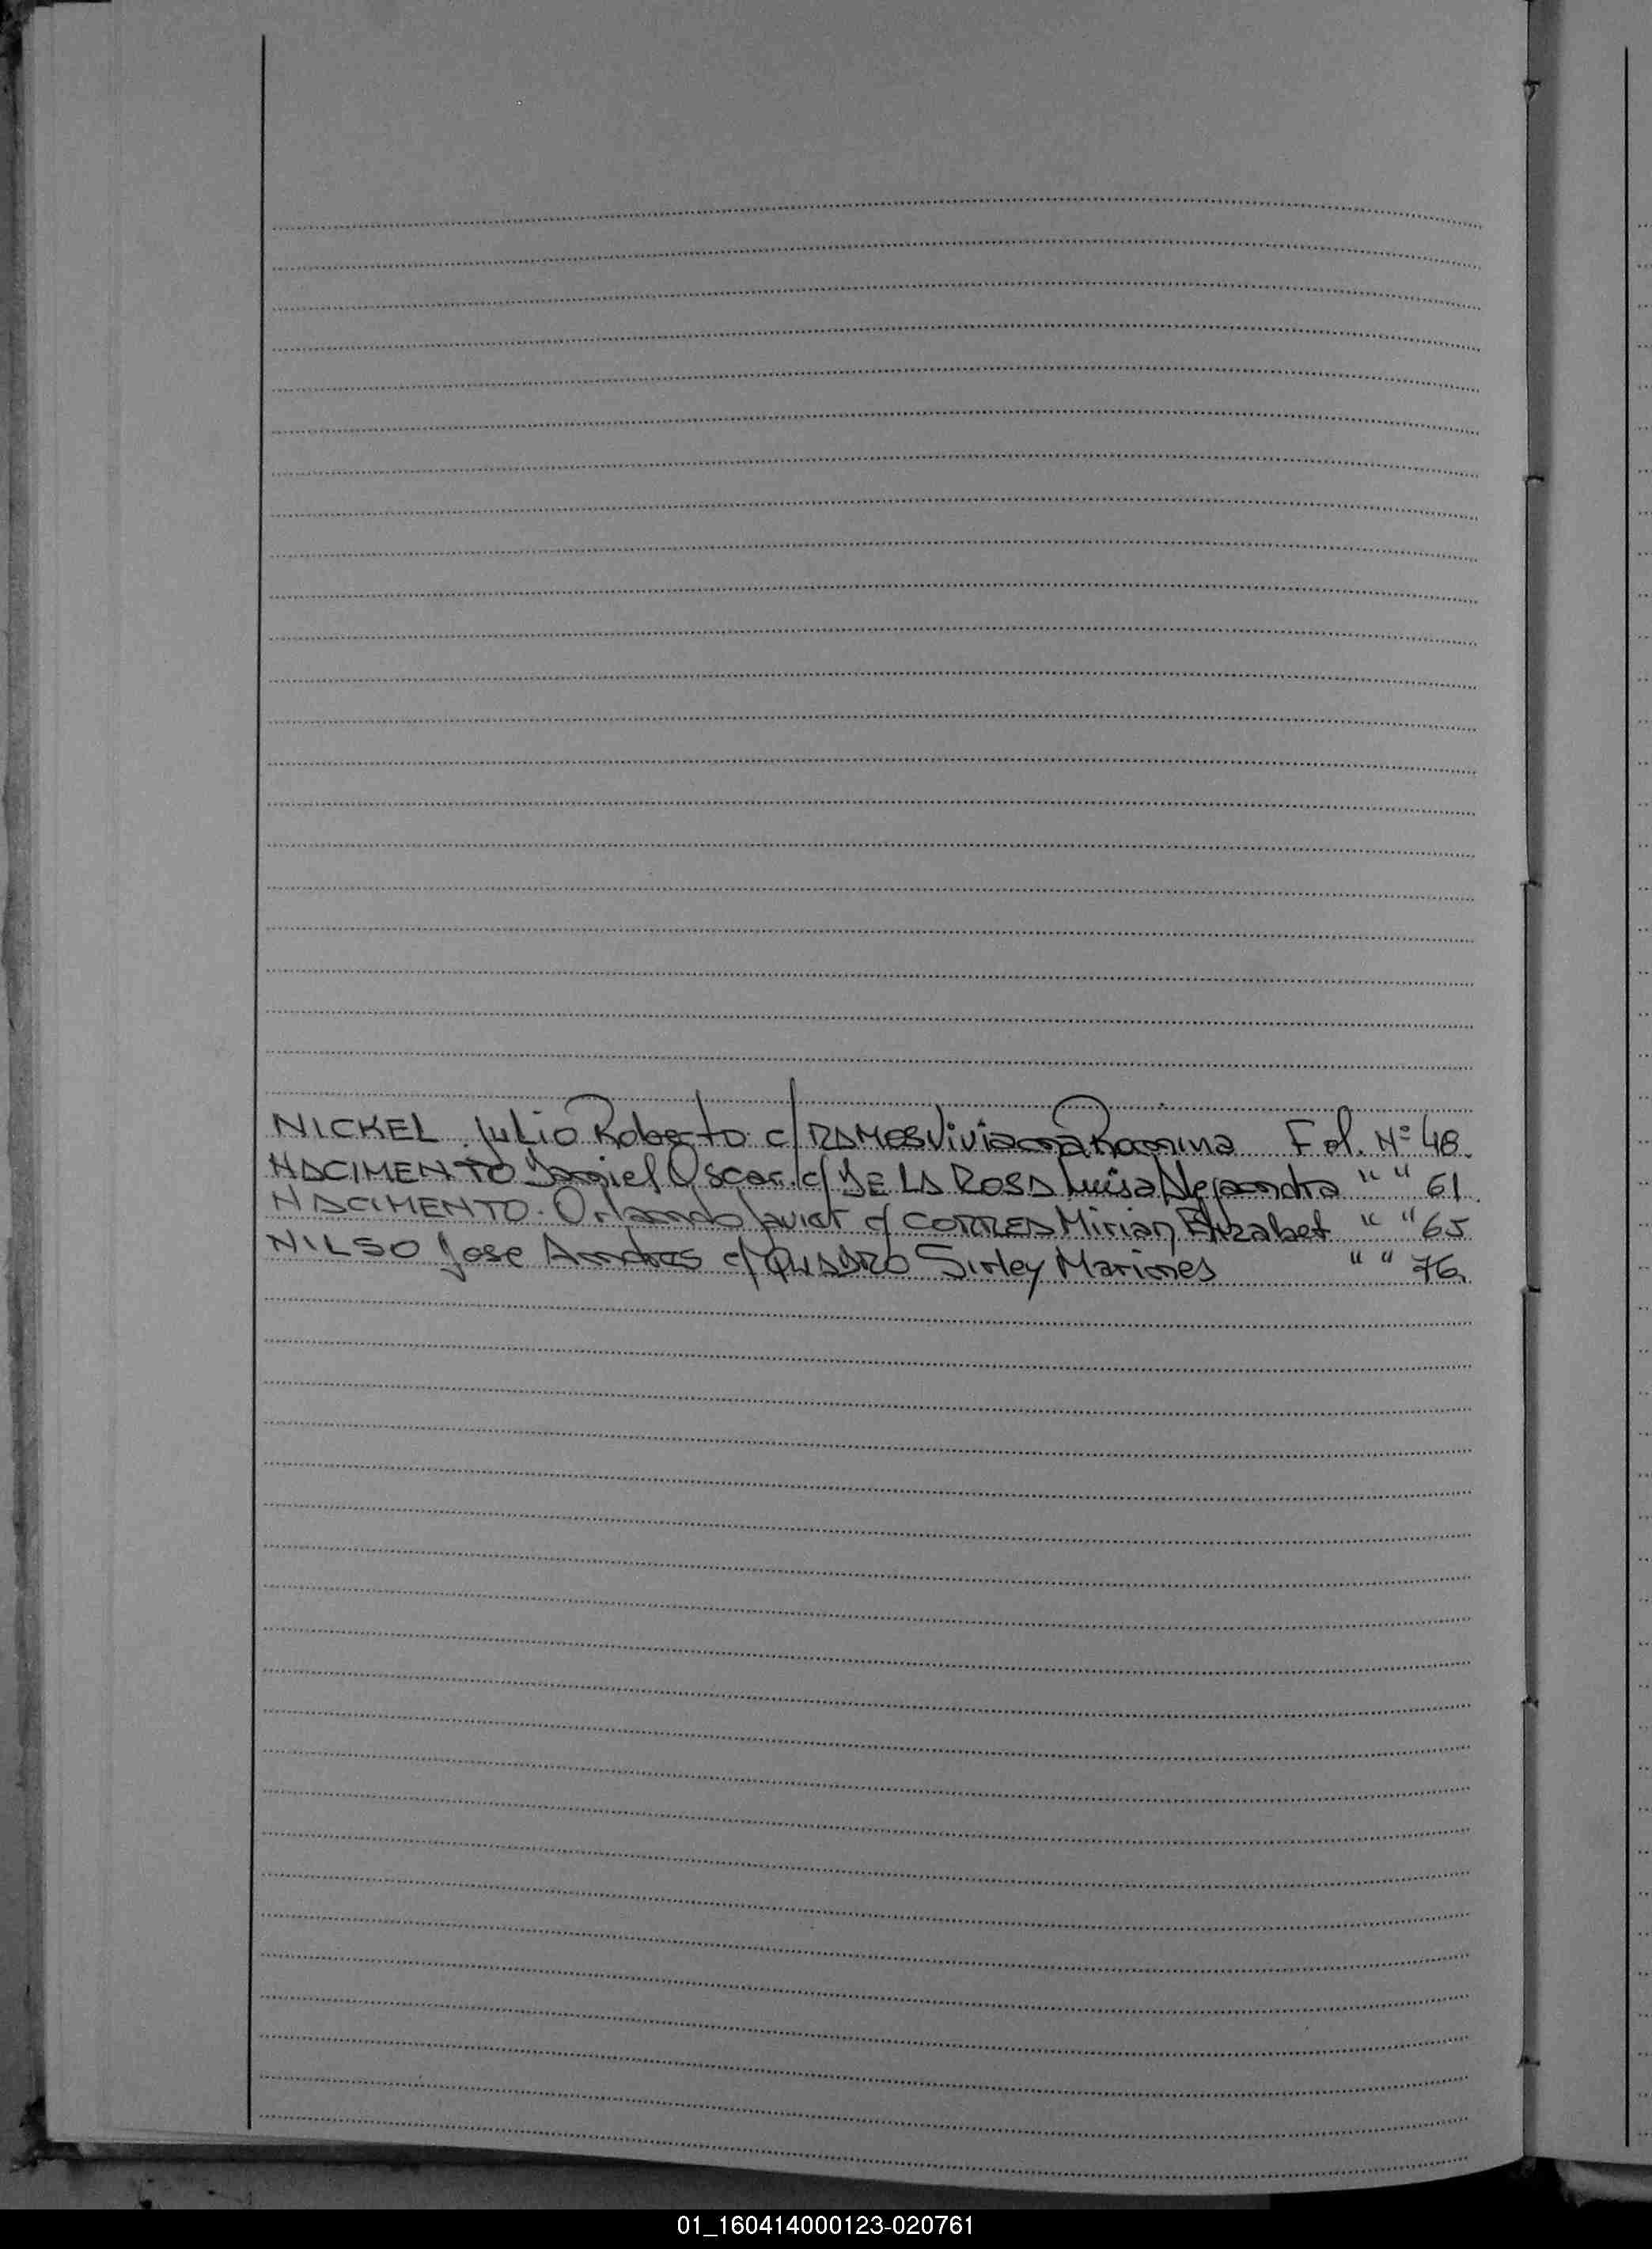 NICKEL Julio Roberto c/ RAMOS Viviana Romina Fol. Nº 48.
NACIMENTO Daniel Oscar. c/ DE LA ROSA Luisa Alejandra " " 61.
NACIMENTO. Orlando Javier c/ CORREA Mirian Elizabet " " 65
NILSO Jose Andres c/ QUADRO Sirley Marines " " 76.
01_160414000123-020761